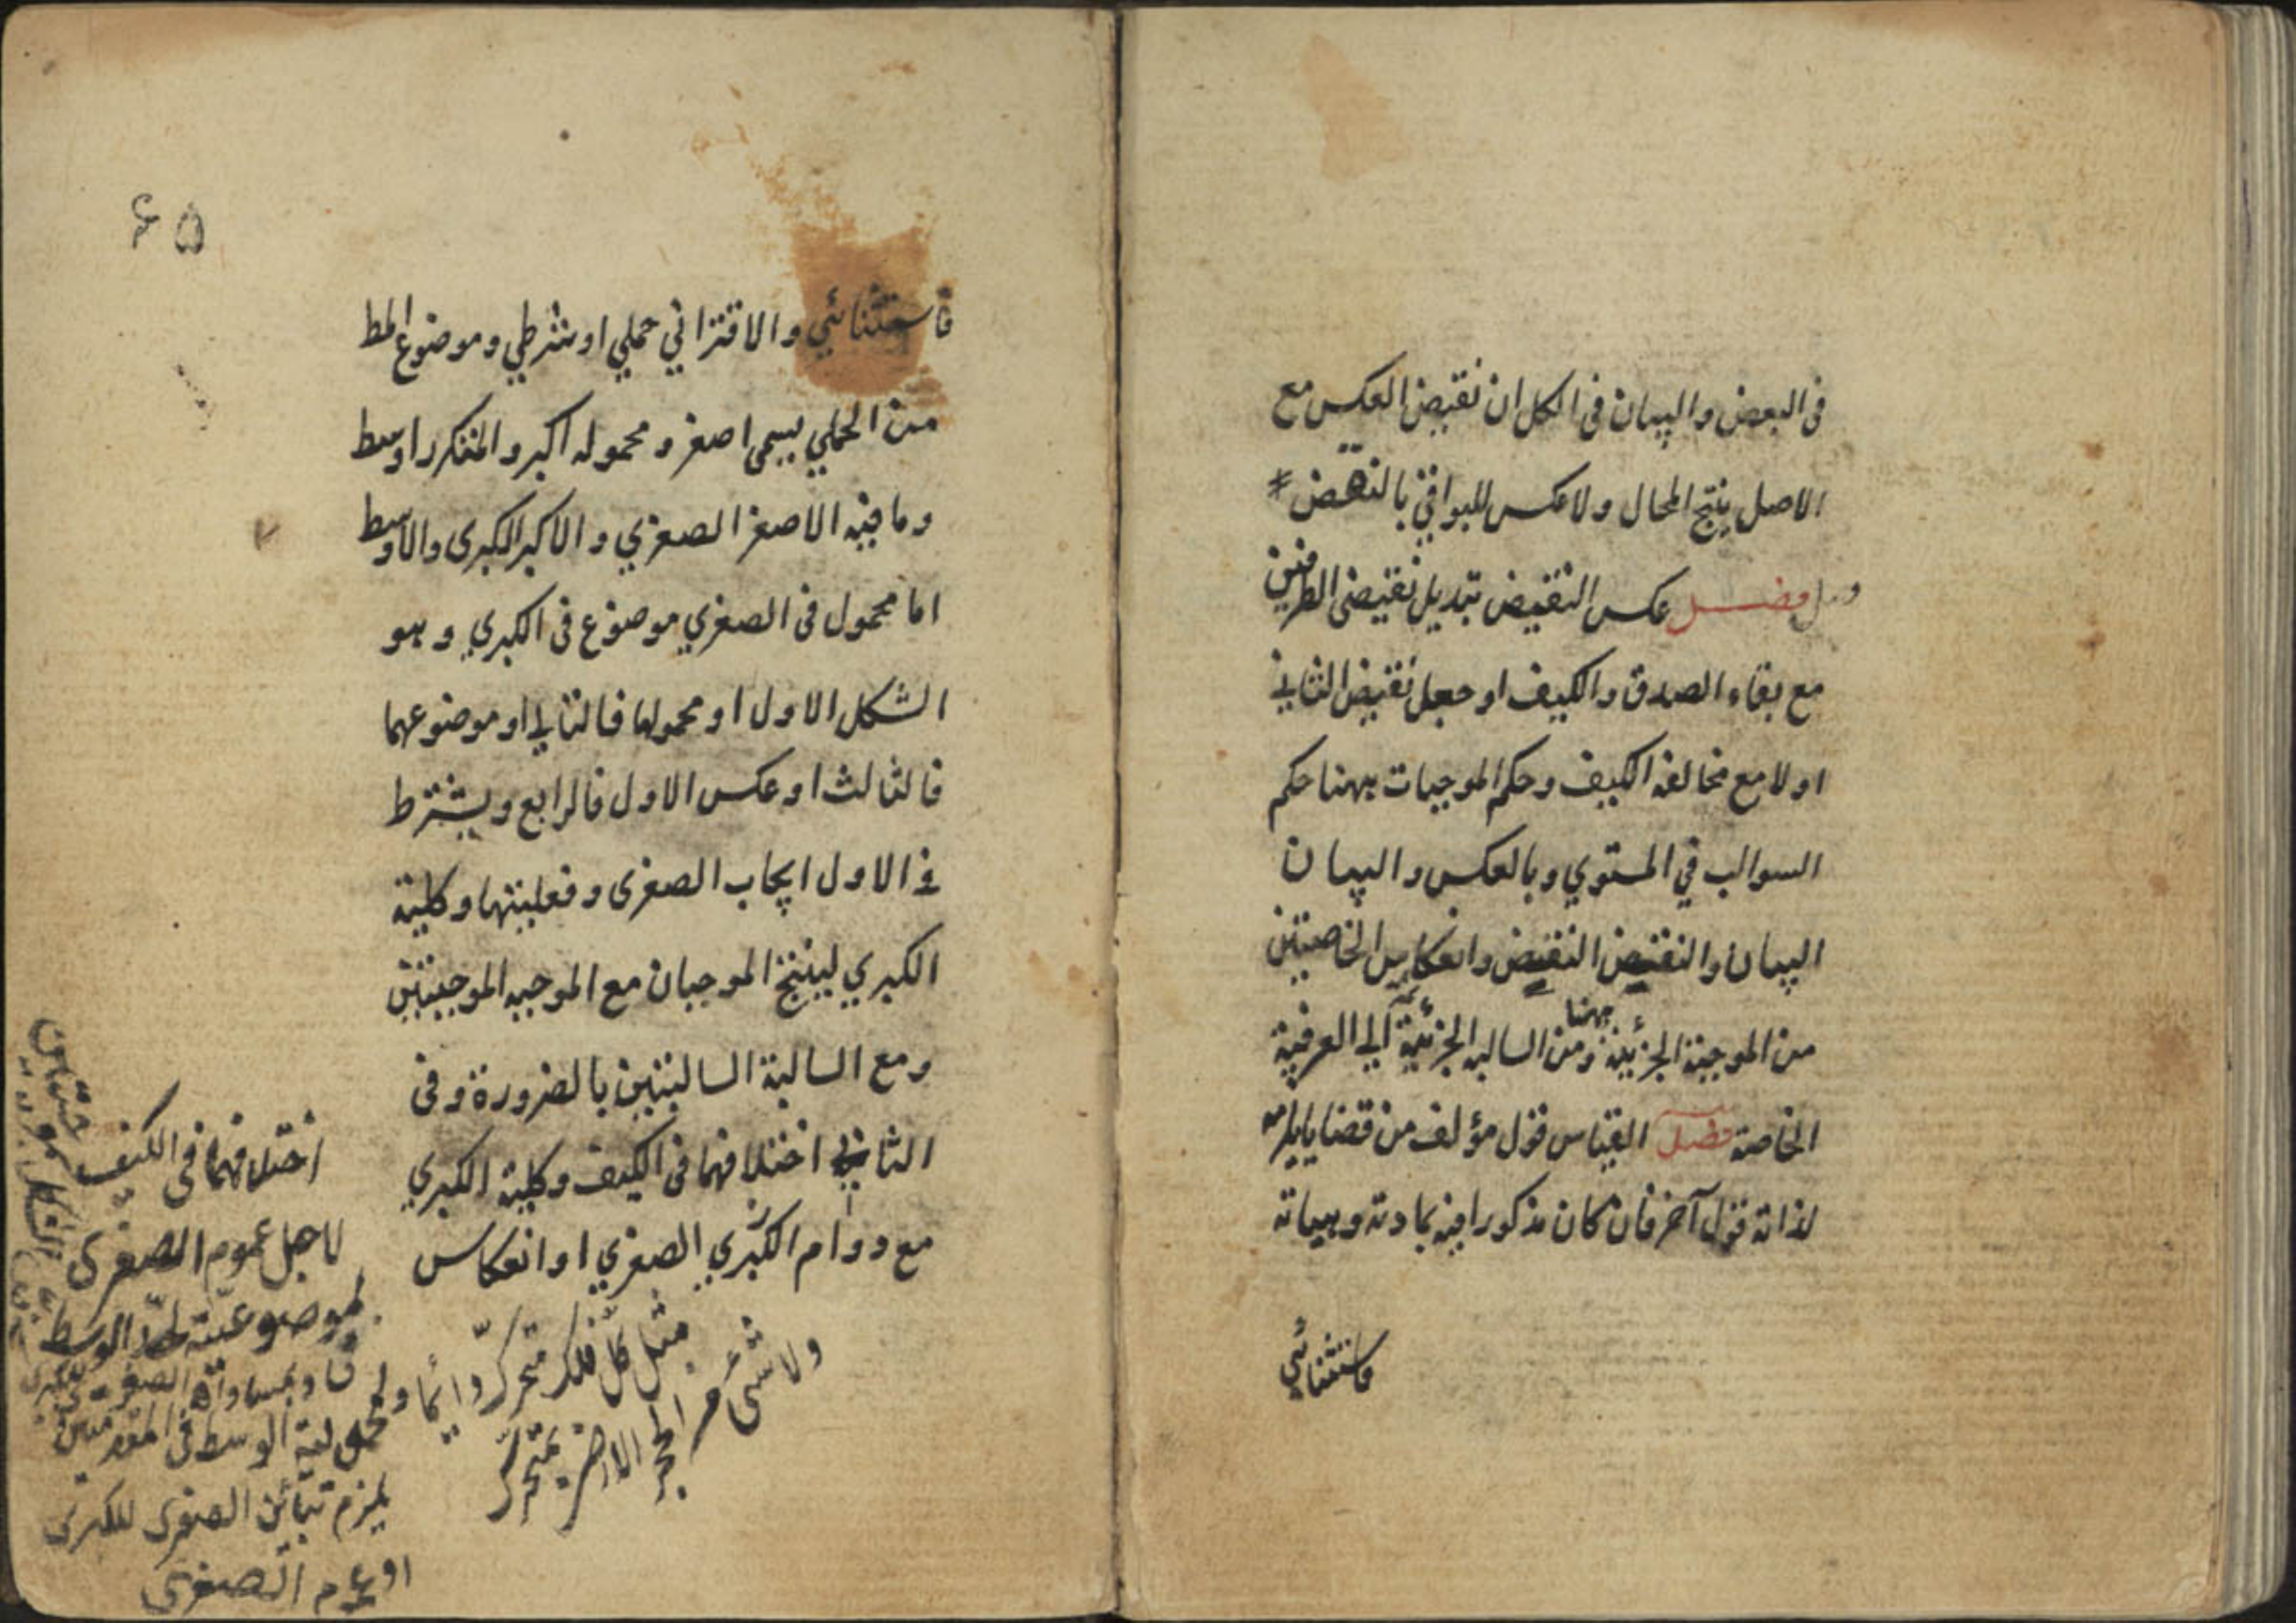 فى البعض والبيان فى الكل ان نقيض العكس مع
الاصل ينتج المحال ولا عكس للبواقي بالنقض *
فصل عكس النقيض تبديل نقيضى الطرفين
مع بقاء الصدق والكيف او جعل نقيض الثاني
اولا مع مخالفة الكيف وحكم الموجبات ههنا حكم
السوالب في المستوي وبالعكس والبيان
البيان والنقيض النقيض وانعكاس الخاصتين
من الموجبة الجزئية ههنا ومن السالبه الجزئية ثمه الي العرفية
الخاصة فصل القياس قول مؤلف من قضايا يلزمه
لذاته قول آخر فان كان مذكورا فيه بمادته وهيئاته
فاستثنائي
۶۵
فاستثنائي والاقتراني حملي او شرطي وموضوع المط
من الحملي يسمى اصغر ومحموله اكبر والمتكرر اوسط
وما فيه الاصغر الصغري والاكبر الكبرى والاوسط
اما محمول فى الصغري موضوع فى الكبري وهو
الشكل الاول او محمولهما فالثاني او موضوعهما
فالثالث او عكس الاول فالرابع ويشترط
في الاول ايجاب الصغرى وفعليتها وكلية
الكبري لينتج الموجبان مع الموجبه الموجبتين
ومع السالبة السالبتين بالضرورة وفى
الثاني اختلافهما فى الكيف وكلية الكبري
مع دوام الكبري الصغري او انعكاس
مثل كل فلك متحرك دائما
ولا شئ من الحجر الارض بمتحرك
اختلافهما فى الكيف
لاجل عموم الصغرى
لموضوعية الوسط
الوسط فى المقدمتين
يلزم تباين الصغرى للكبرى
او عموم الصغرى